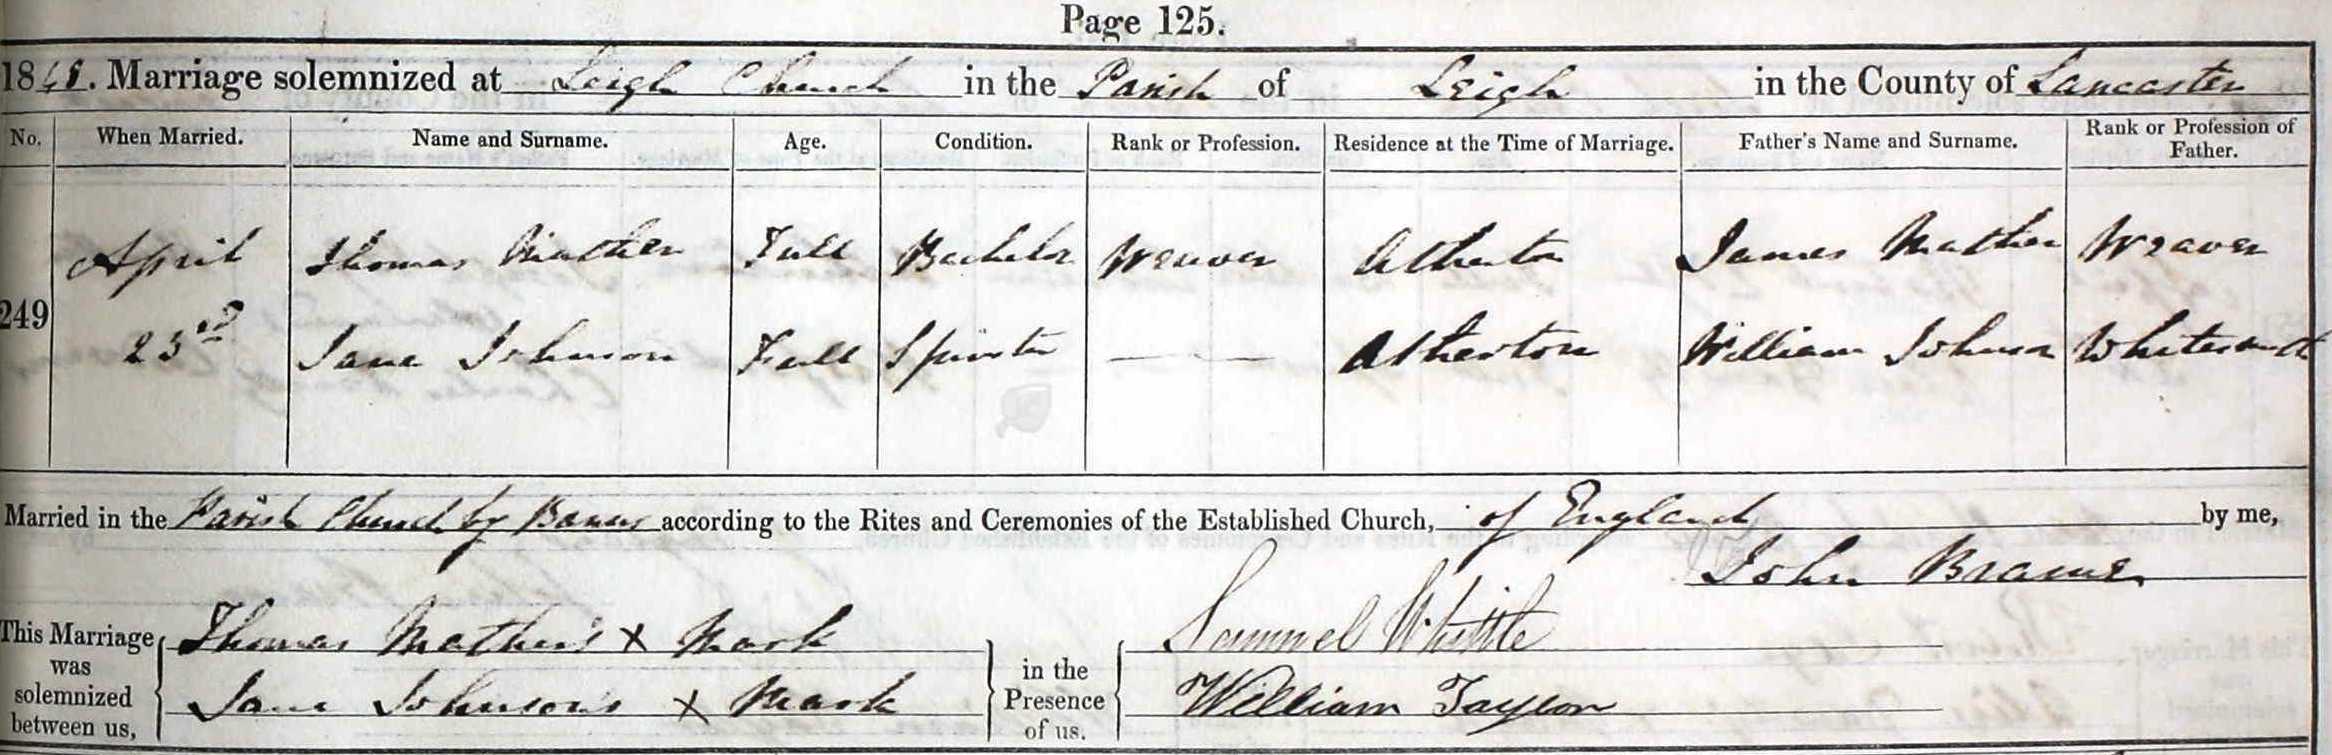 Page 125.
1848. Marriage solemnized at Leigh Church in the Parish of Leigh in the County of Lancaster
No. When Married. Name and Surname. Age. Condition. Rank or Profession. Residence at the Time of Marriage. Father's Name and Surname. Rank or Profession of Father.
April Thomas Mather Full Bachelor Weaver Atherton James Mather Weaver
249
23rd Jane Johnson Full Spinster — — Atherton William Johnson Whitesmith
Married in the Parish Church by Banns according to the Rites and Ceremonies of the Established Church, of England by me,
John
This Marriage was solemnized between us,
Thomas Mather's X Mark
Jane Johnson's X Mark
in the Presence of us.
Samuel Whittle
William Taylor